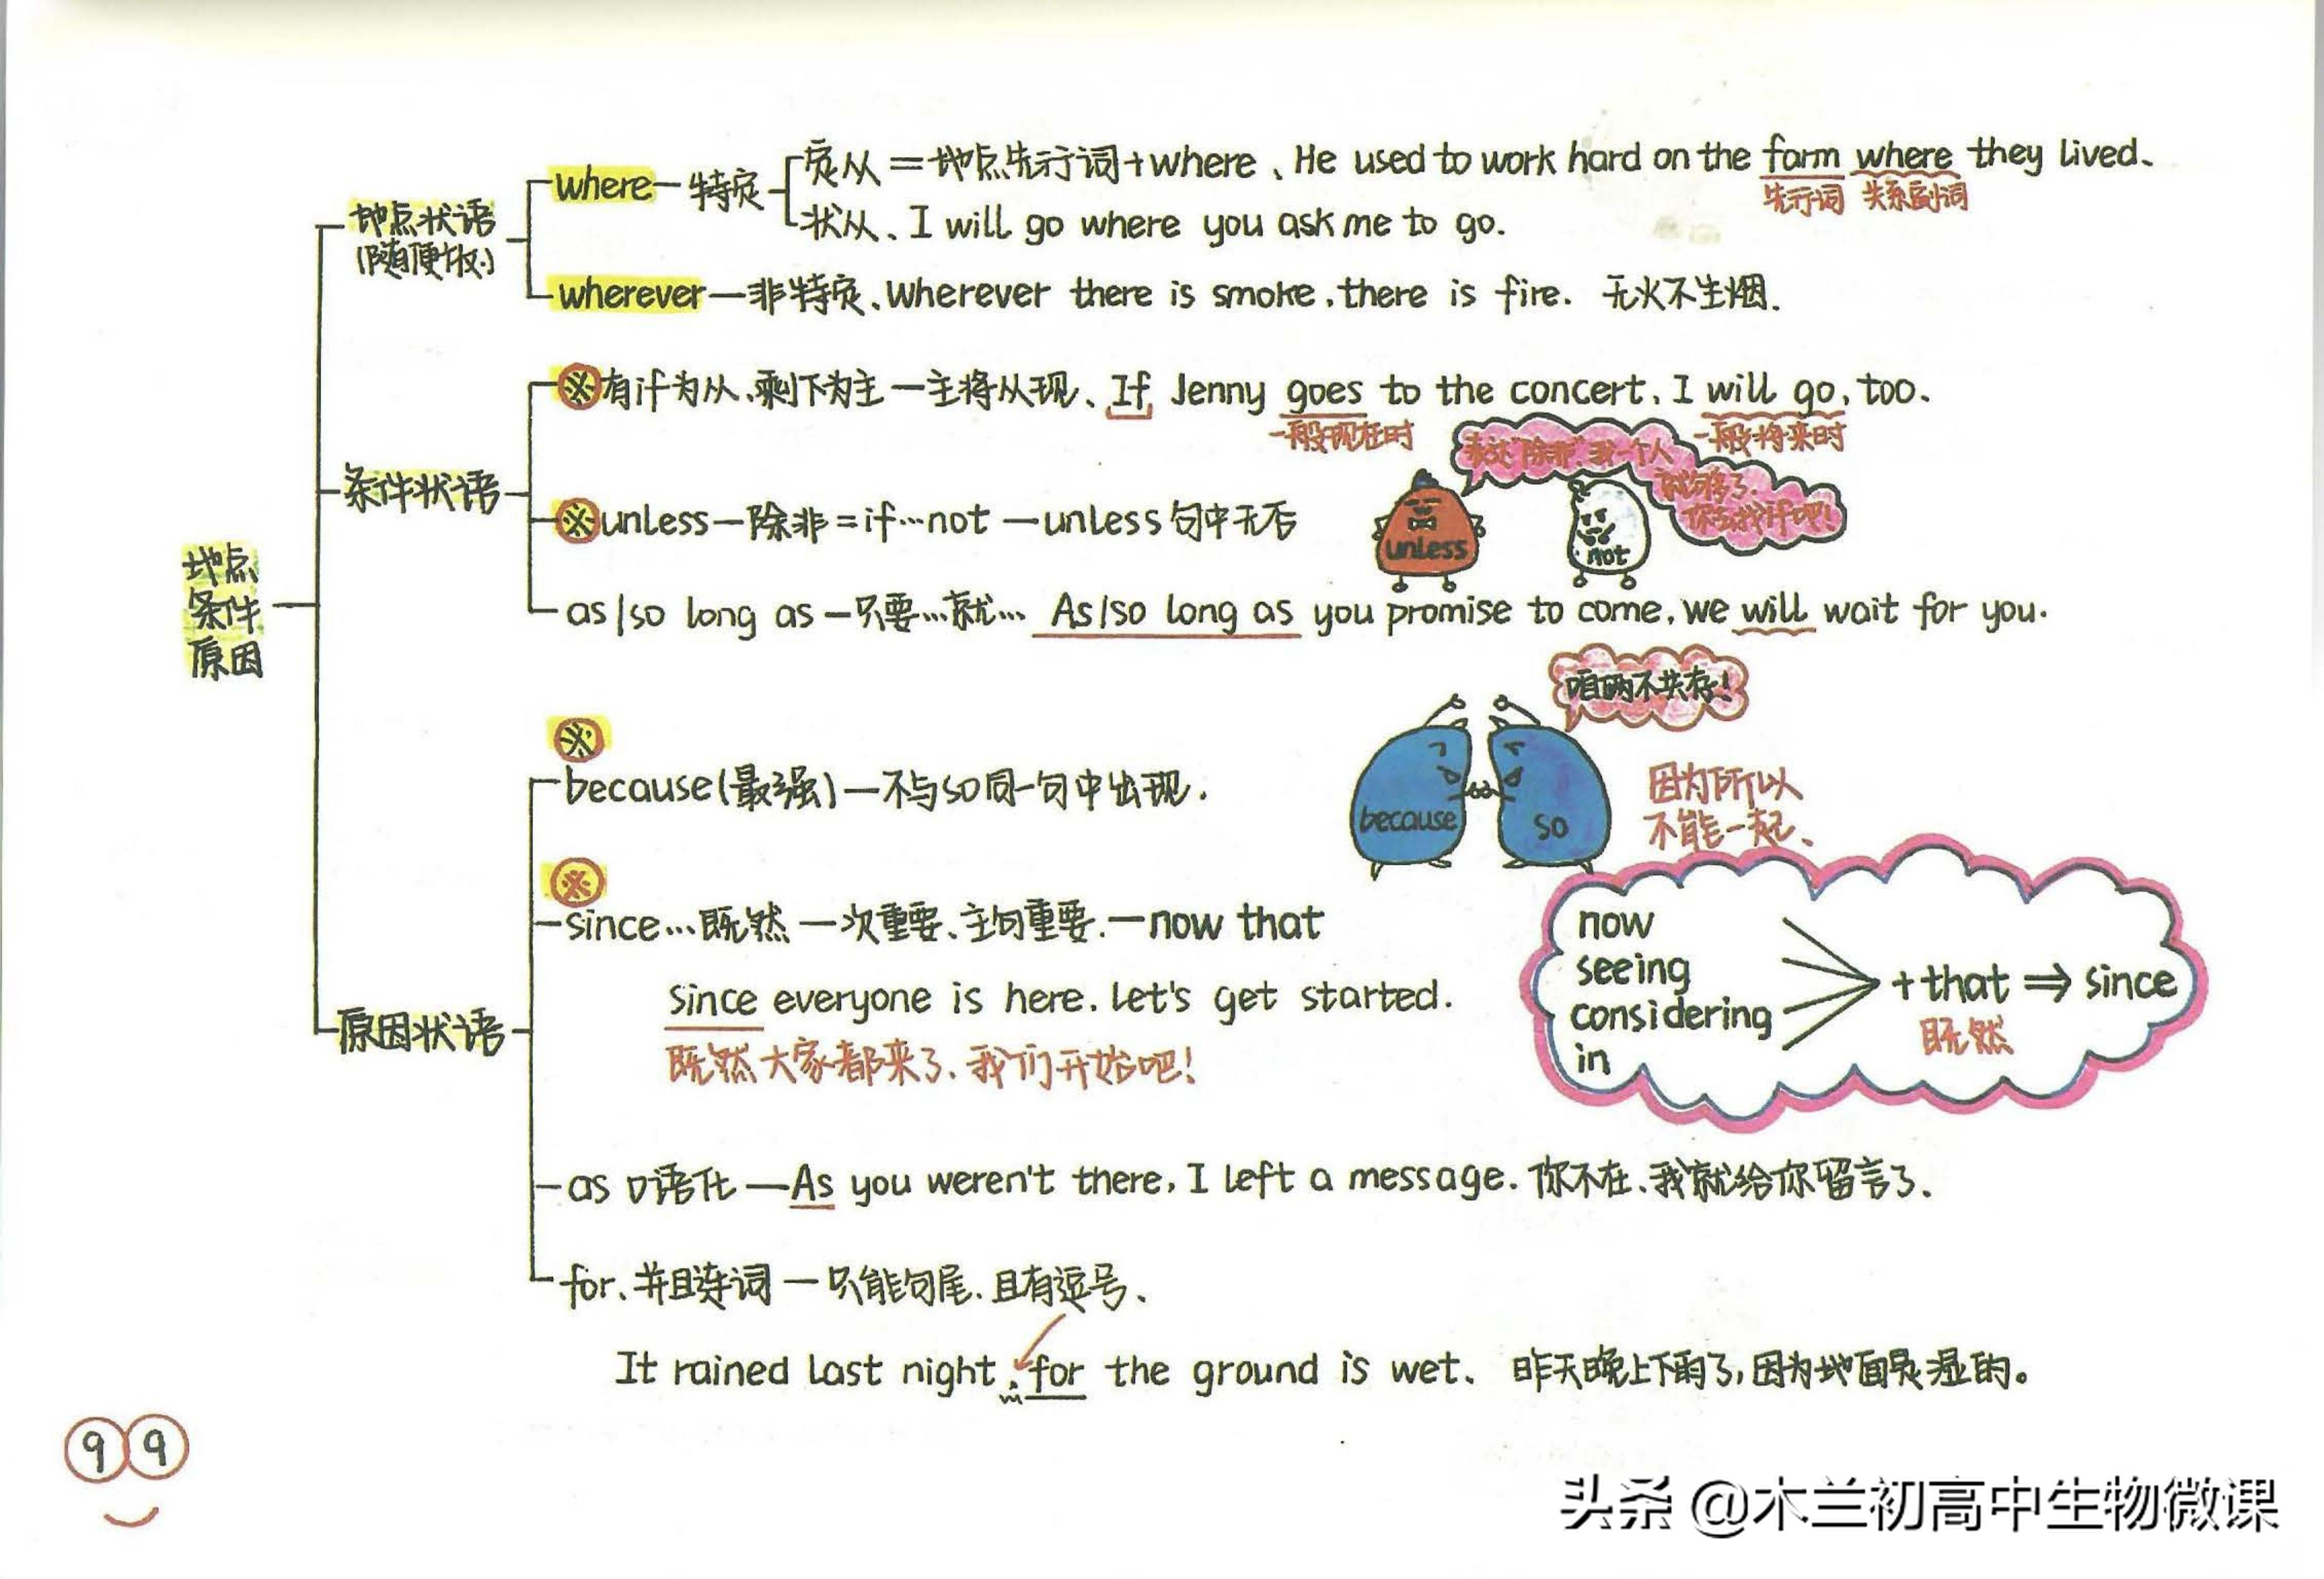 地点
条件
原因
地点状语
(随便放)
where—特定
定从=地点先行词+where、He used to work hard on the farm where they lived、
先行词 关系副词
状从、I will go where you ask me to go.
wherever—非特定、Wherever there is smoke,there is fire. 无火不生烟.
条件状语
※有if为从、剩下为主—主将从现、If Jenny goes to the concert, I will go, too、
一般现在时 一般将来时
表达"除非"我一个人
就够了、
你去找if吧!
unless
not
※unless—除非=if…not—unless句中无否
as/so long as—只要…就… As/so long as you promise to come, we will wait for you.
原因状语
※
because(最强)—不与so同一句中出现.
咱俩不共存!
because
so
因为所以
不能一起、
※
since…既然—次重要、主句重要.—now that
since everyone is here. Let's get started.
既然大家都来了、我们开始吧!
now
seeing
considering
in
+that⇒since
既然
as 口语化—As you weren't there, I left a message. 你不在、我就给你留言了、
for、并且连词—只能句尾、且有逗号、
It rained last night, for the ground is wet、 昨天晚上下雨了,因为地面是湿的。
99
头条 @木兰初高中生物微课